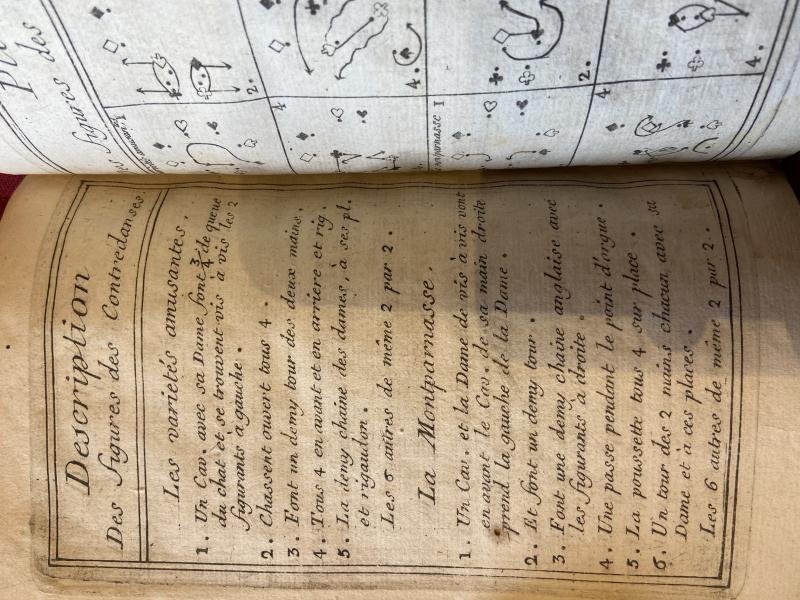 Description
Des figures des Contredanses
Les varietés amusantes.
1. Un Cav. avec sa Dame font 3/4 de queue
du chat et se trouvent vis à vis les 2
figurants à gauche.
2. Chassent ouvert tous 4.
3. Font un demy tour des deux mains.
4. Tous 4 en avant et en arriere et rig.
5. La demy chaine des dames, à ses pl.
et rigaudon.
Les 6 autres de même 2 par 2.
La Montparnasse.
1. Un Cav. et la Dame de vis à vis vont
en avant le Cav. de sa main droite
prend la gauche de la Dame.
2. Et font un demy tour.
3. Font une demy chaine anglaise avec
les figurants à droite.
4. Une passe pendant le point d'orgue.
5. La poussette tous 4 sur place.
6. Un tour des 2 mains chacun avec sa
Dame et à ces places.
Les 6 autres de même 2 par 2.
des figures des
1
2.
4
4.
1
2.
4
4.